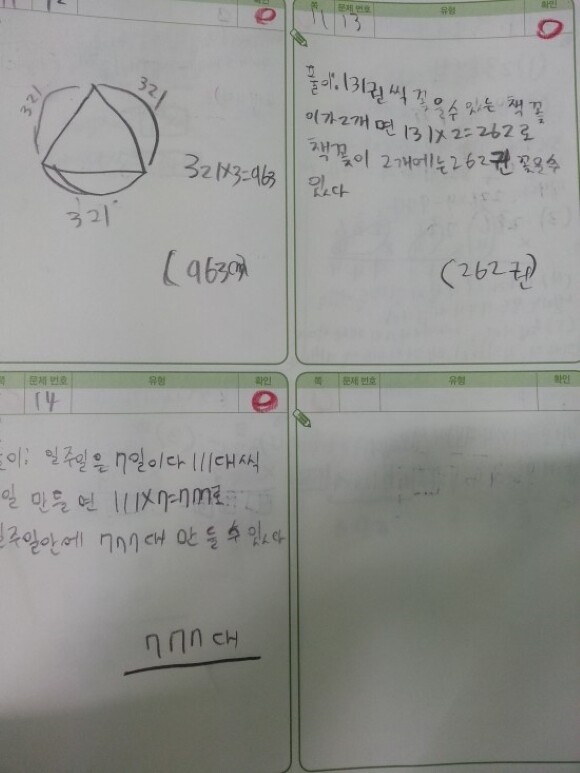 12
확인
321
321
321
321×3=963
(963cm)
쪽 문제 번호 유형 확인
11 13
풀이: 131권 씩 꽂을수 있는 책꽂
이가 2개 면 131×2=262로
책꽂이 2개에는 262권 꽂을수
있다
(262권)
쪽 문제 번호 유형 확인
14
풀이: 일주일은 7일이다 111대씩
일 만들면 111×7=777로
일주일안에 777대 만들수 있다
777대
쪽 문제 번호 유형 확인